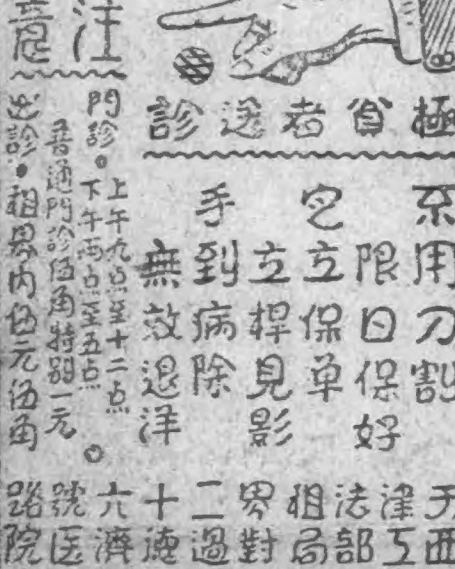 注意
極貧者送診
用刀割
限日保好
㝎立保单
立桿見影
手到病除
無效退洋
門診。上午九点至十二点
下午两点至五点
普通門診伍角特别一元。
出診。租界内伍元伍角
天津法租界二十六號路
西工部局對過德濟医院